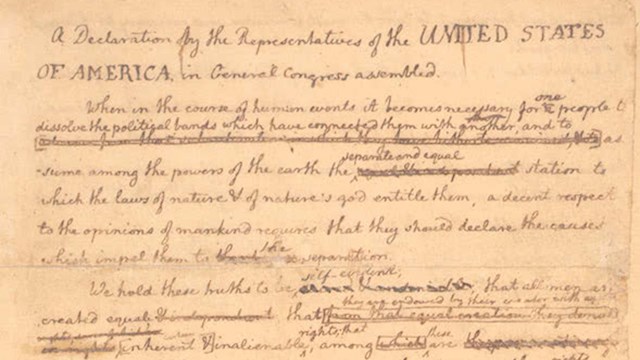 A Declaration by the Representatives of the UNITED STATES
OF AMERICA, in General Congress assembled.
When in the course of human events it becomes necessary for one people t
dissolve the political bands which have connected them with another, and to as
-sume among the powers of the earth the separate and equal station to
which the laws of nature & of nature's god entitle them, a decent respect
to the opinions of mankind requires that they should declare the causes
which impel them to the separation.
We hold these truths to be self-evident, that all men ar
created equal & independent that from that equal creation they
they are endowed by their creator with
rights; that
inherent & inalienable, among which these are